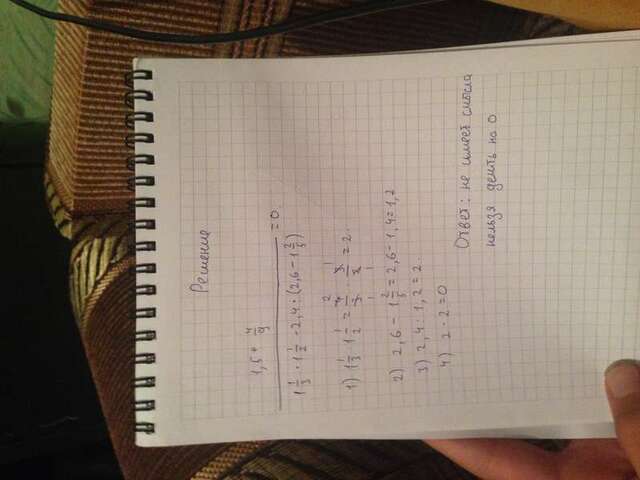 Решение
1,5 + 4/9
= 0.
1 1/3 · 1 1/2 - 2,4 : (2,6 - 1 2/5)
1) 1 1/3 · 1 1/2 = 4/3 · 3/2 = 2.
2) 2,6 - 1 2/5 = 2,6 - 1,4 = 1,2
3) 2,4 : 1,2 = 2.
4) 2 - 2 = 0
Ответ: не имеет смысла
нельзя делить на 0